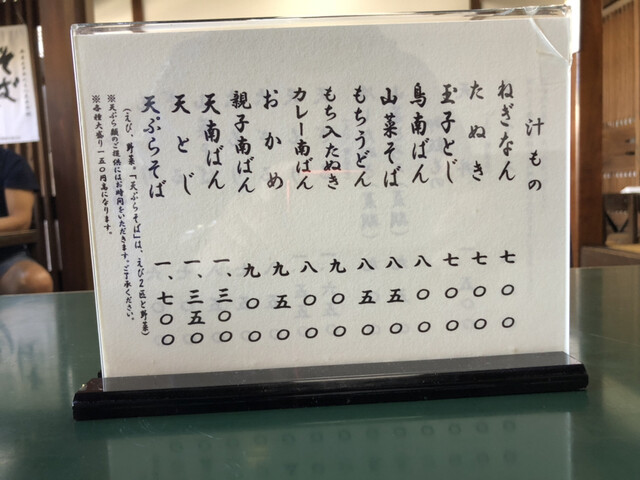 汁もの
ねぎなん 七〇〇
たぬき 七〇〇
玉子とじ 七〇〇
鳥南ばん 八〇〇
山菜そば 八五〇
もちうどん 八五〇
もち入たぬき 九〇〇
カレー南ばん 八〇〇
おかめ 九五〇
親子南ばん 九〇〇
天南ばん 一、三〇〇
天とじ 一、三五〇
天ぷらそば 一、七〇〇
(えび、野菜。「天ぷらそば」は、えび2匹と野菜)
※天ぷら類のご提供にはお時間をいただきます。ご了承ください。
※各種大盛り一五〇円高になります。
そば